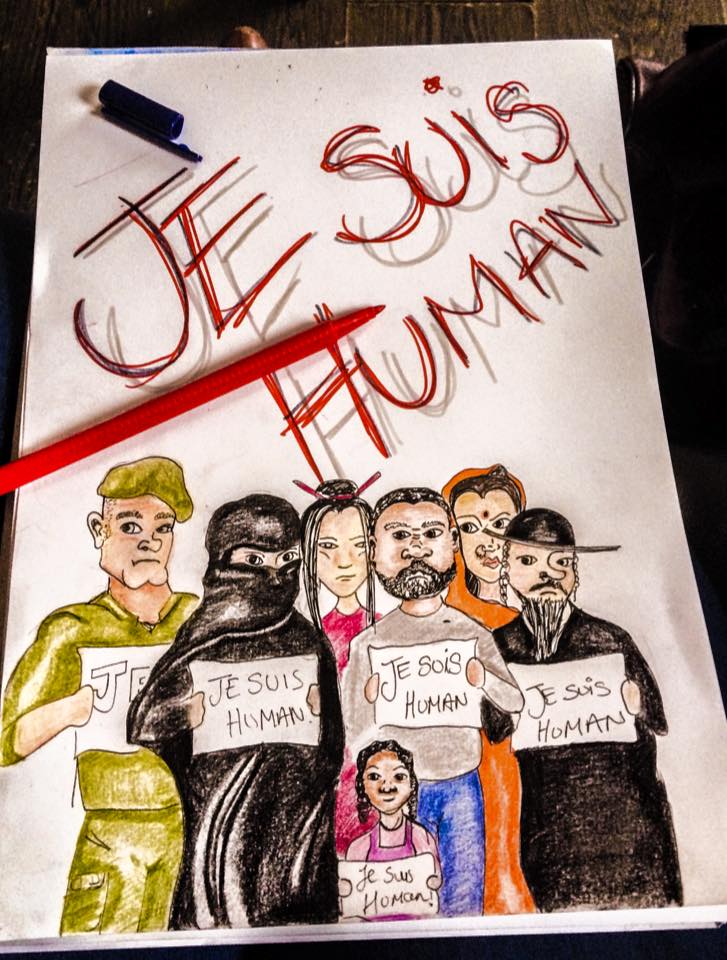 JE SUiS
HUMAN
JE
JE SUIS
HUMAN!
JE SUiS
HUMAN
JE SUiS
HUMAN
Je Suis
Human!